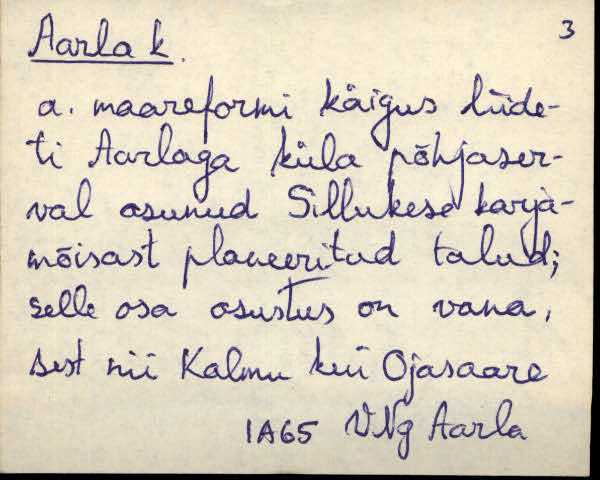 Aarla k. 3
a. maareformi käigus liide-
ti Aarlaga küla põhjaser-
val asunud Sillukese karja-
mõisast planeeritud talud;
selle osa asustus on vana,
sest nii Kalmu kui Ojasaare
IA65 VNg Aarla